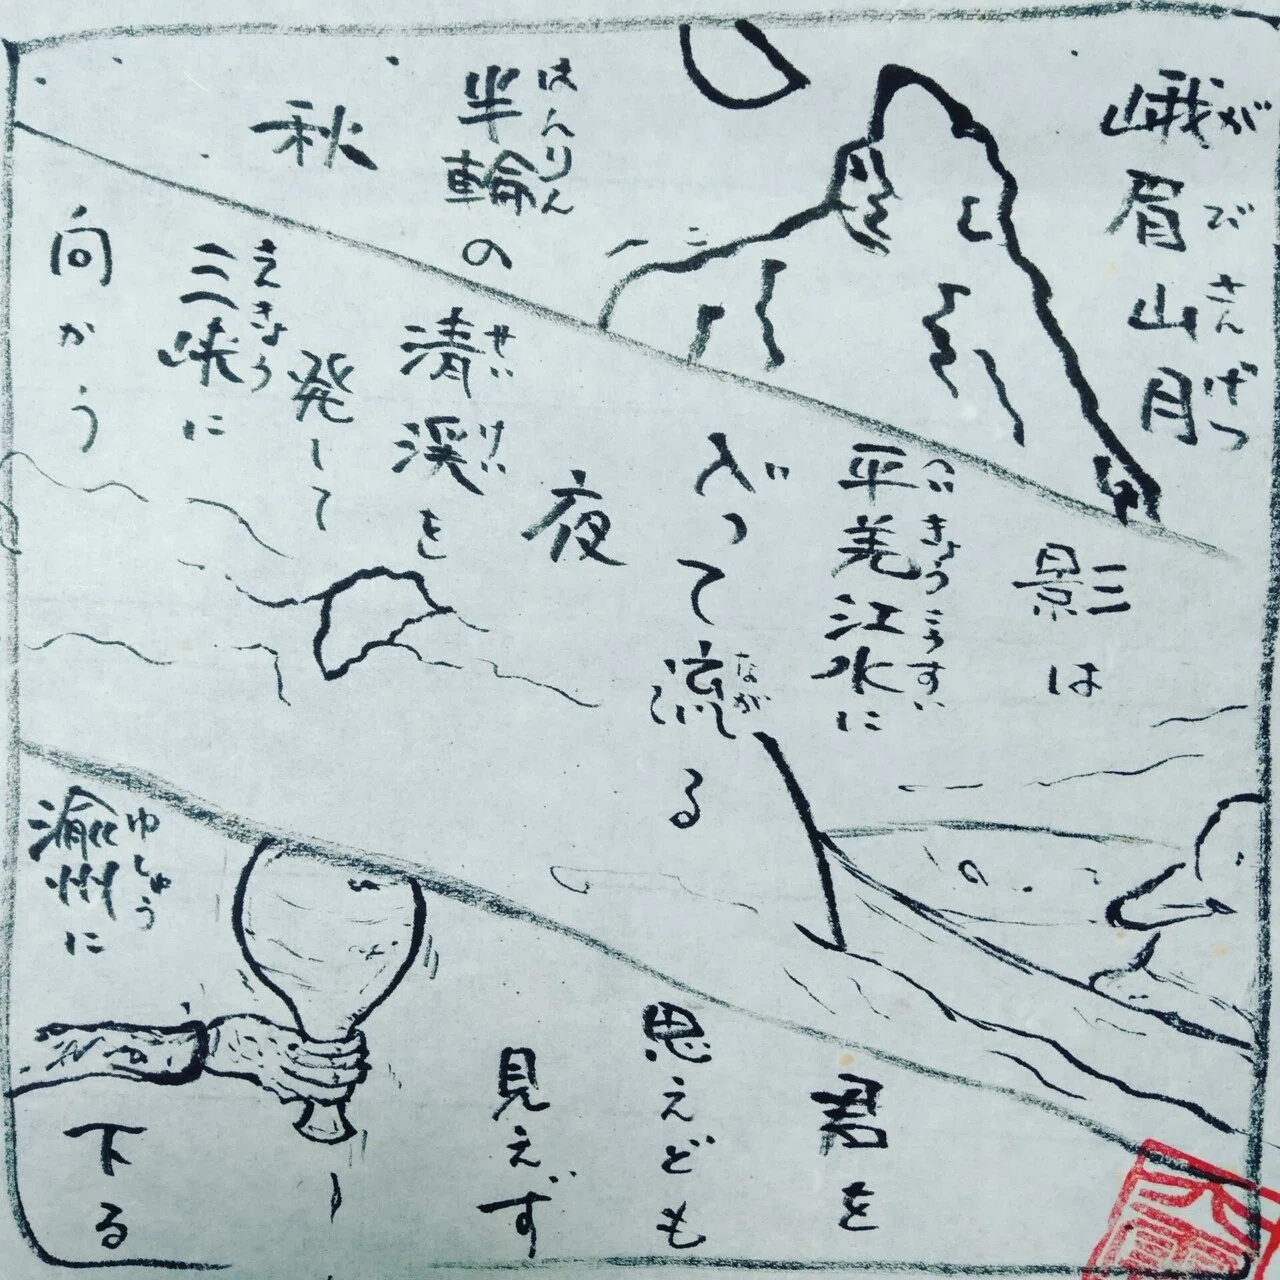 峨眉山月
がびさんげつ
半輪の
はんりん
秋
影は
平羌江水に
へいきょうこうすい
入って
流る
なが
夜
清渓を
せいけい
発して
三峡に
向かう
君を
思えども
見えず
渝州に
ゆしゅう
下る